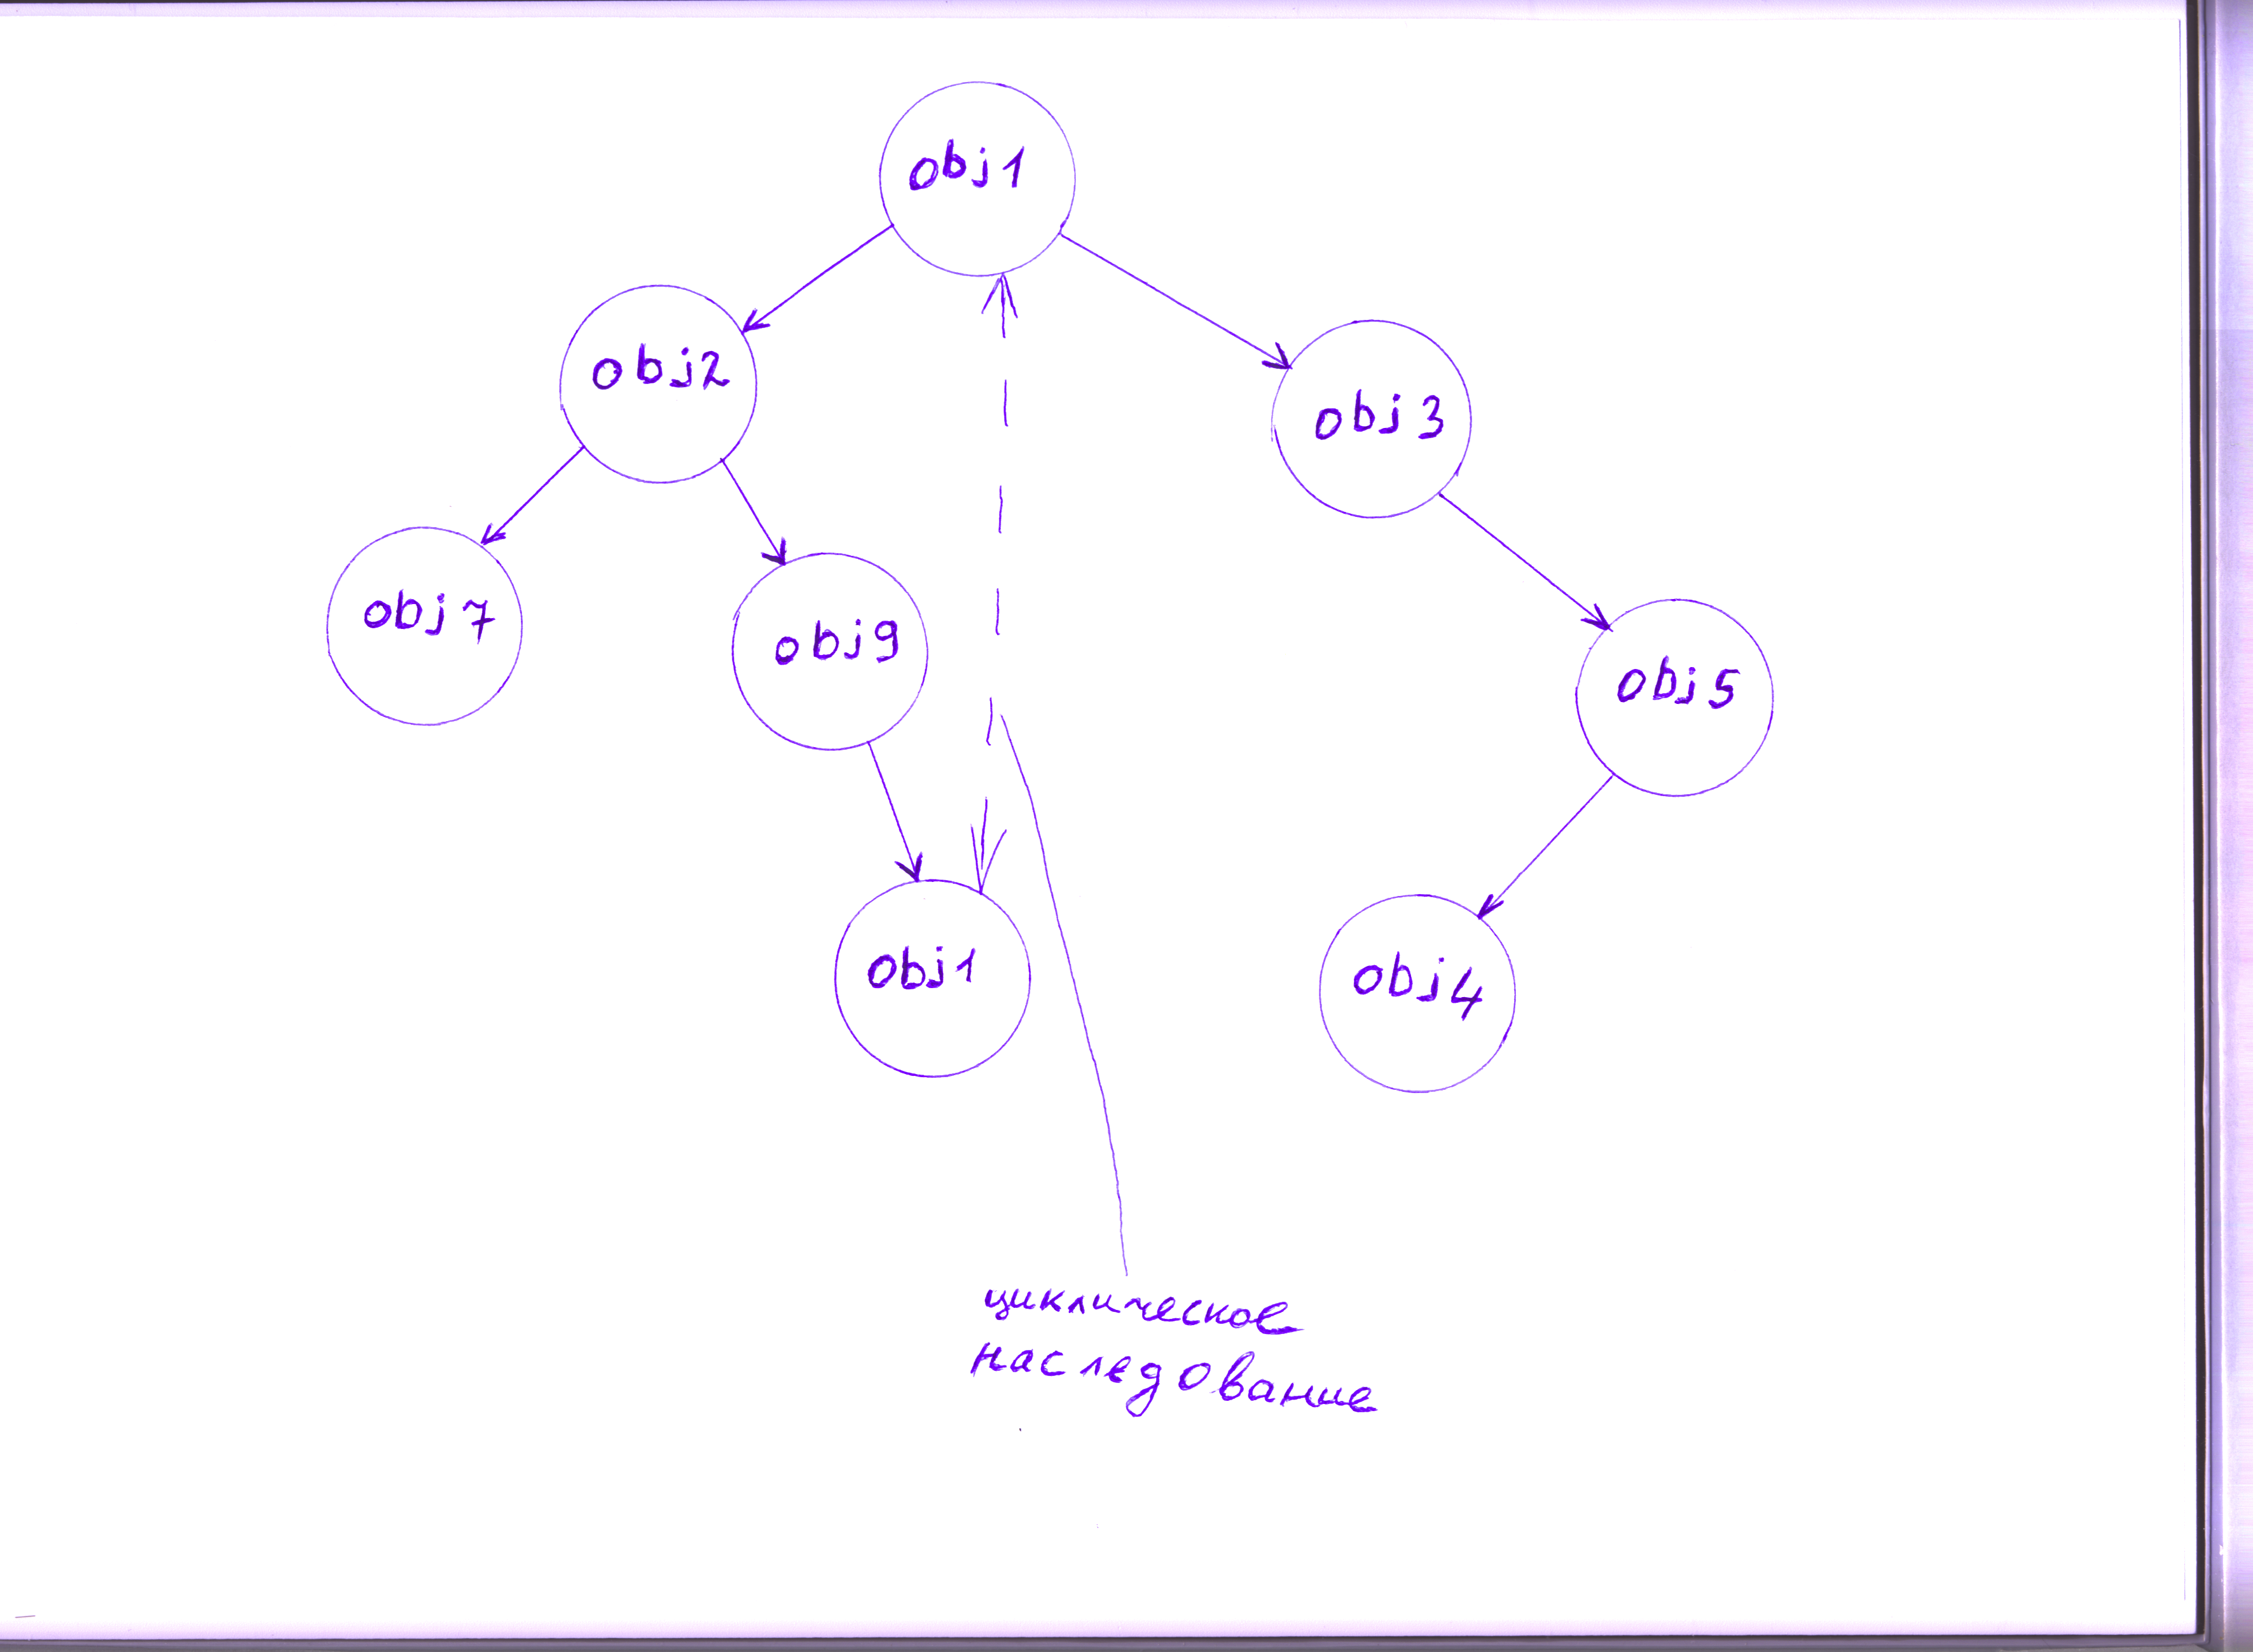 obj1
obj2
obj3
obj7
obj9
obj5
obj1
obj4
циклическое
наследование